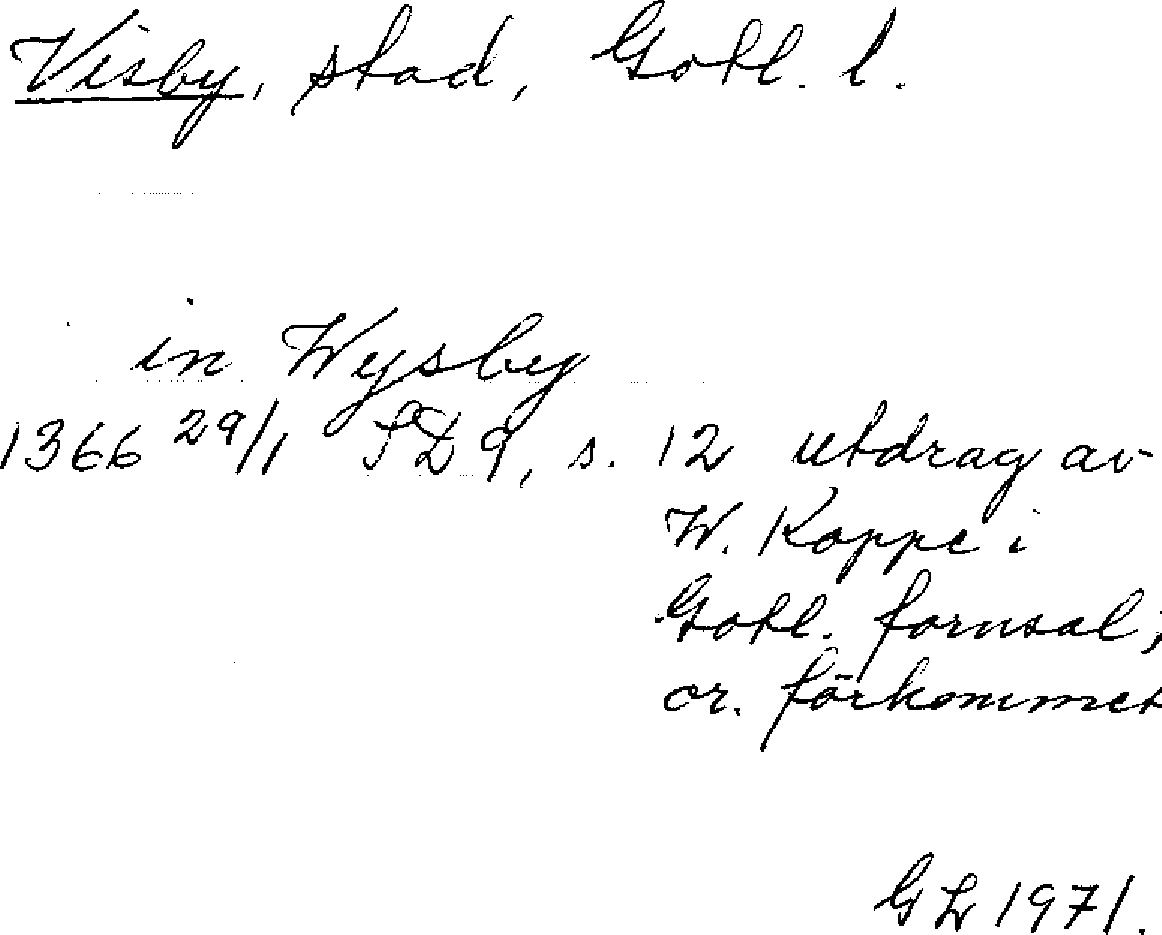 Visby, stad, Gotl. l.
in Wysby
1366 29/1 SD 9, s. 12 utdrag av
W. Koppe i
Gotl. fornsal;
or. förkommet
GL 1971.